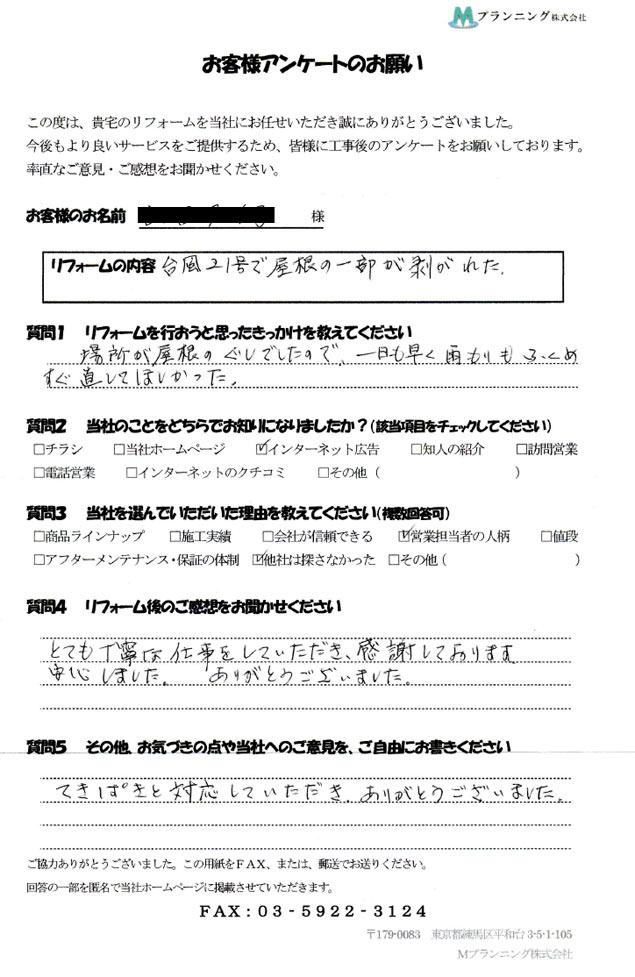 Mプランニング株式会社
お客様アンケートのお願い
この度は、貴宅のリフォームを当社にお任せいただき誠にありがとうございました。
今後もより良いサービスをご提供するため、皆様に工事後のアンケートをお願いしております。
率直なご意見・ご感想をお聞かせください。
お客様のお名前 様
リフォームの内容 台風21号で屋根の一部が剥がれた.
質問1 リフォームを行おうと思ったきっかけを教えてください
場所が屋根のぐしでしたので、一日も早く雨もりもふくめ
すぐ直してほしかった。
質問2 当社のことをどちらでお知りになりましたか？(該当項目をチェックしてください)
□チラシ □当社ホームページ ☑インターネット広告 □知人の紹介 □訪問営業
□電話営業 □インターネットのクチコミ □その他 ( )
質問3 当社を選んでいただいた理由を教えてください(複数回答可)
□商品ラインナップ □施工実績 □会社が信頼できる ☑営業担当者の人柄 □値段
□アフターメンテナンス・保証の体制 ☑他社は探さなかった □その他 ( )
質問4 リフォーム後のご感想をお聞かせください
とても丁寧な仕事をしていただき、感謝しております
安心しました。 ありがとうございました。
質問5 その他、お気づきの点や当社へのご意見を、ご自由にお書きください
てきぱきと対応していただき、ありがとうございました。
ご協力ありがとうございました。この用紙をＦＡＸ、または、郵送でお送りください。
回答の一部を匿名で当社ホームページに掲載させていただきます。
FAX：03-5922-3124
〒179-0083 東京都練馬区平和台 3-5-1-105
Mプランニング株式会社